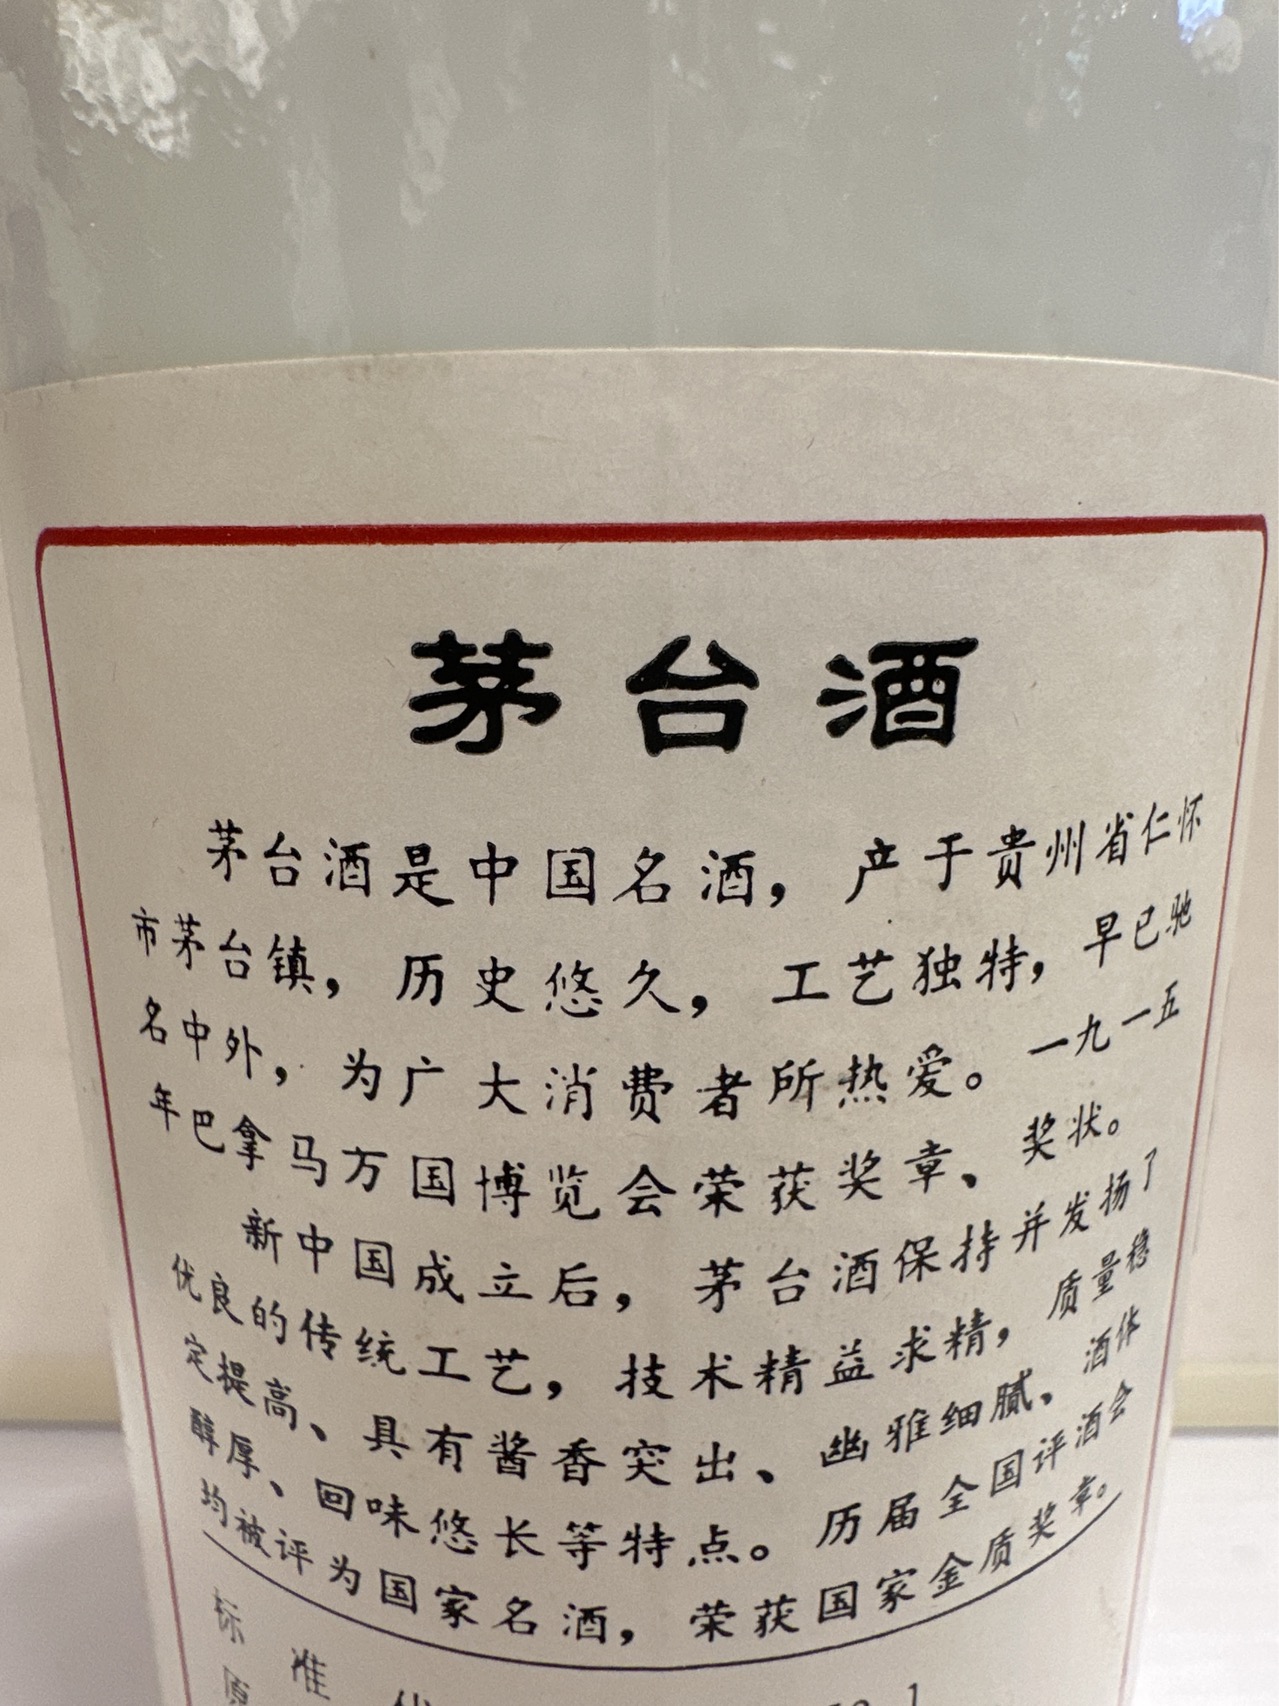 茅台酒
茅台酒是中国名酒，产于贵州省仁怀
市茅台镇，历史悠久，工艺独特，早已驰
名中外，为广大消费者所热爱。一九一五
年巴拿马万国博览会荣获奖章、奖状。
新中国成立后，茅台酒保持并发扬了
优良的传统工艺，技术精益求精，质量稳
定提高、具有酱香突出、幽雅细腻、酒体
醇厚、回味悠长等特点。历届全国评酒会
均被评为国家名酒，荣获国家金质奖章。
标准
原